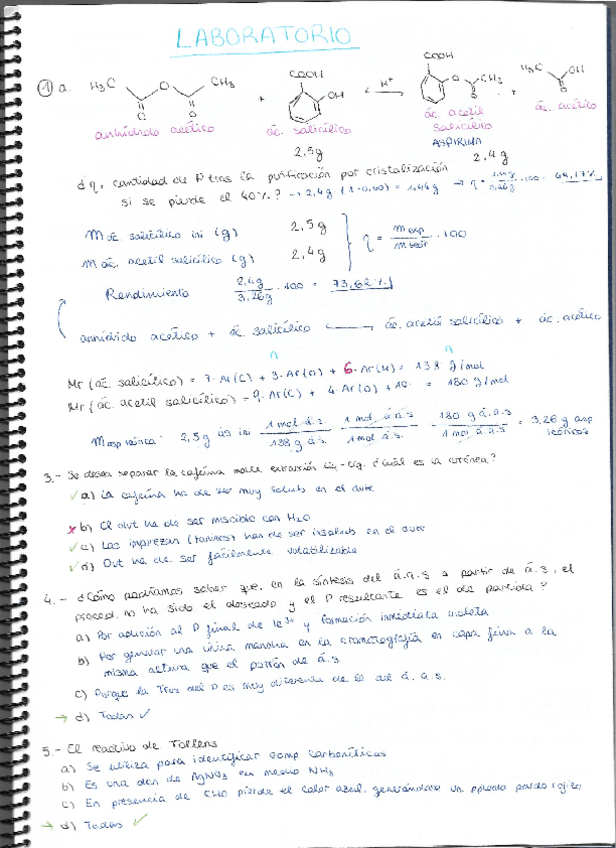 LABORATORIO
1) a. H3C O CH3 + COOH OH H+ COOH O CH3 + H3C OH
O O O O
anhídrido acético ác. salicílico ác acetil salicílico ác. acético
ASPIRINA
2,5g 2,4g
d η, cantidad de P tras la purificación por cristalización
si se pierde el 40%? → 2,4g (1-0,40) = 1,44g → η = 1,44g / 3,26g · 100 = 44,17%
m ác. salicílico ini (g) 2,5g
m ác. acetil salicílico (g) 2,4g
η = m exp / m teór · 100
Rendimiento 2,4g / 3,26g · 100 = 73,62%
anhídrido acético + ác. salicílico ác. acetil salicílico + ác. acético
Mr (ác. salicílico) = 7·Ar(C) + 3·Ar(O) + 6·Ar(H) = 138 g/mol
Mr (ác. acetil salicílico) = 9·Ar(C) + 4·Ar(O) + = 180 g/mol
m asp teórica: 2,5g ás ini 1 mol á.s. / 138 g á.s. 1 mol á.a.s. / 1 mol á.s. 180 g á.a.s / 1 mol á.a.s = 3,26g asp teóricos
3.- Se desea separar la cafeína extracción líq-líq. ¿Cuál es la errónea?
✓ a) La cafeína ha de ser muy soluble en el dvte
x b) El dvt ha de ser miscible con H2O
✓ c) Las impurezas (taninos) han de ser insolubles en el dvte
✓ d) Dvt ha de ser fácilmente volatilizable
4.- ¿Cómo podríamos saber que, en la síntesis del á.a.s a partir de á.s, el
proced. no ha sido el deseado y el P resultante es el de partida?
a) Por adición al P final de Fe3+ y formación inmediata violeta
b) Por generar una única mancha en la cromatografía en capa fina a la
misma altura que el patrón de á.s
c) Porque la Tfus del P es muy diferente de la del á.a.s.
→ d) Todas ✓
5.- El reactivo de Tollens
a) Se utiliza para identificar comp carbonílicos
b) Es una dson de AgNO3 en medio NH3
c) En presencia de CHO pierde el color azul, generándose un ppdo pardo rojizo
→ d) Todas ✓